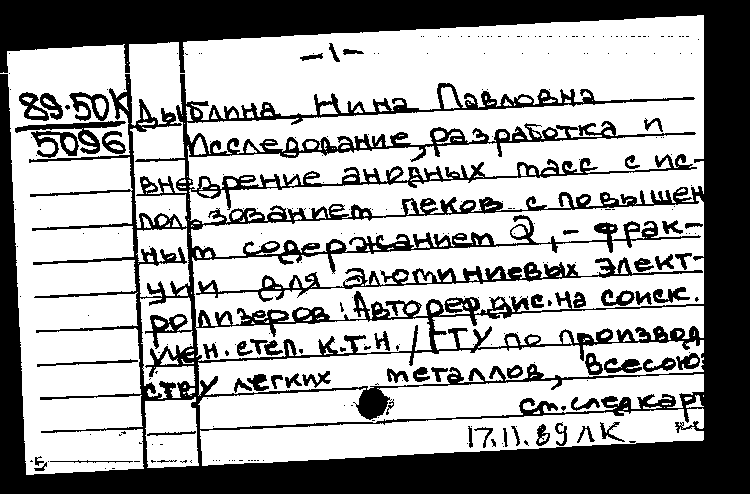 -1-
89-50К
5096
Дыблина, Нина Павловна
Исследование, разработка и
внедрение анодных масс с ис-
пользованием пеков с повышен
ным содержанием Q,- фрак-
ции для алюминиевых элект-
ролизеров: Автореф.дис.на соиск.
учен.степ. к.т.н. /ГТУ по производ
ству легких металлов, Всесоюз
ст.след карт
17.11.89 ЛК
5